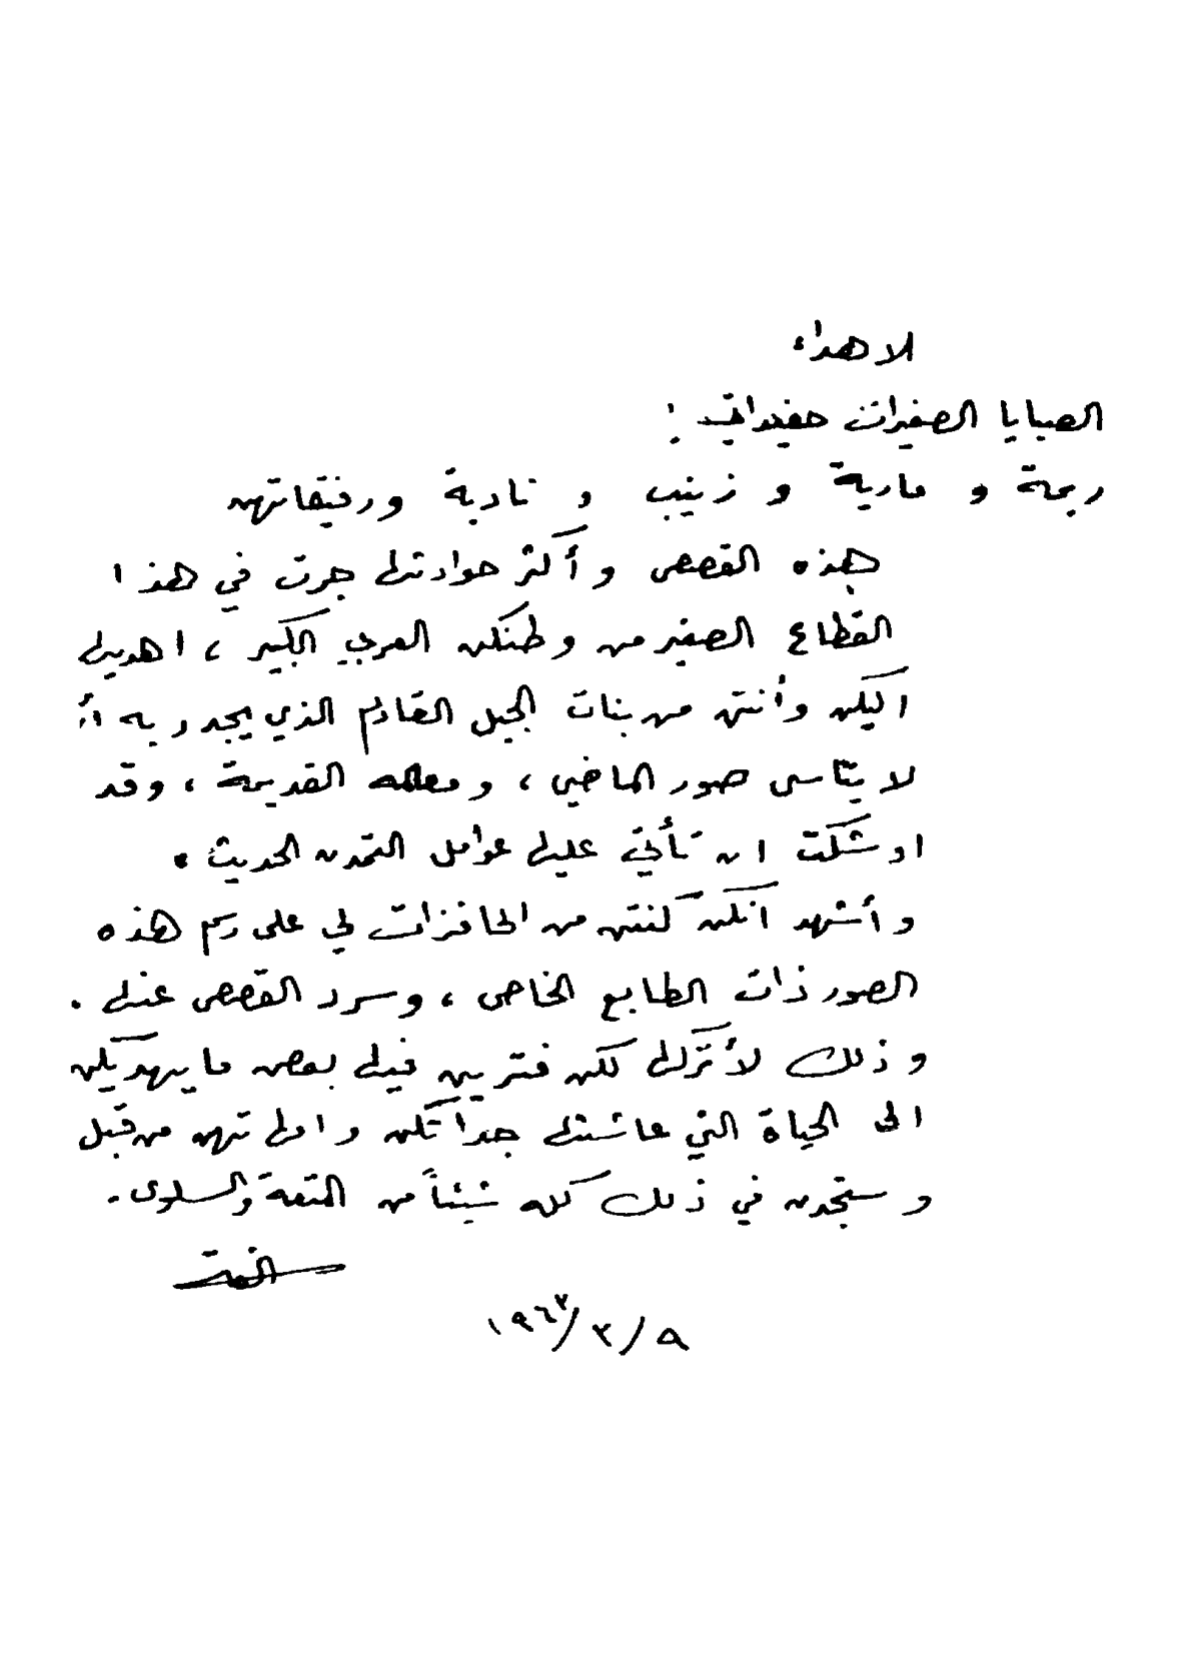 الاهداء
الصبايا الصغيرات حفيداتي :
ريمة و مارية و زينب و نادية ورفيقاتهن
هذه القصص وأكثر حوادثها جرت في هذا
القطاع الصغير من وطنكن العربي الكبير ، اهديها
اليكن وأنتن من بنات الجيل القادم الذي يجدر به أن
لا يتناسى صور الماضي ، ومعالمه القديمة ، وقد
اوشكت ان تأتي عليها عوامل التمدن الحديث .
وأشهد انكن كنتن من الحافزات لي على رسم هذه
الصور ذات الطابع الخاص ، وسرد القصص عنها .
وذلك لأتركها لكن فترين فيها بعض ما يهديكن
الى الحياة التي عاشتها جداتكن وامهاتهن من قبل
وستجدن في ذلك كله شيئاً من المتعة والسلوى .
٩/٣/١٩٦٣